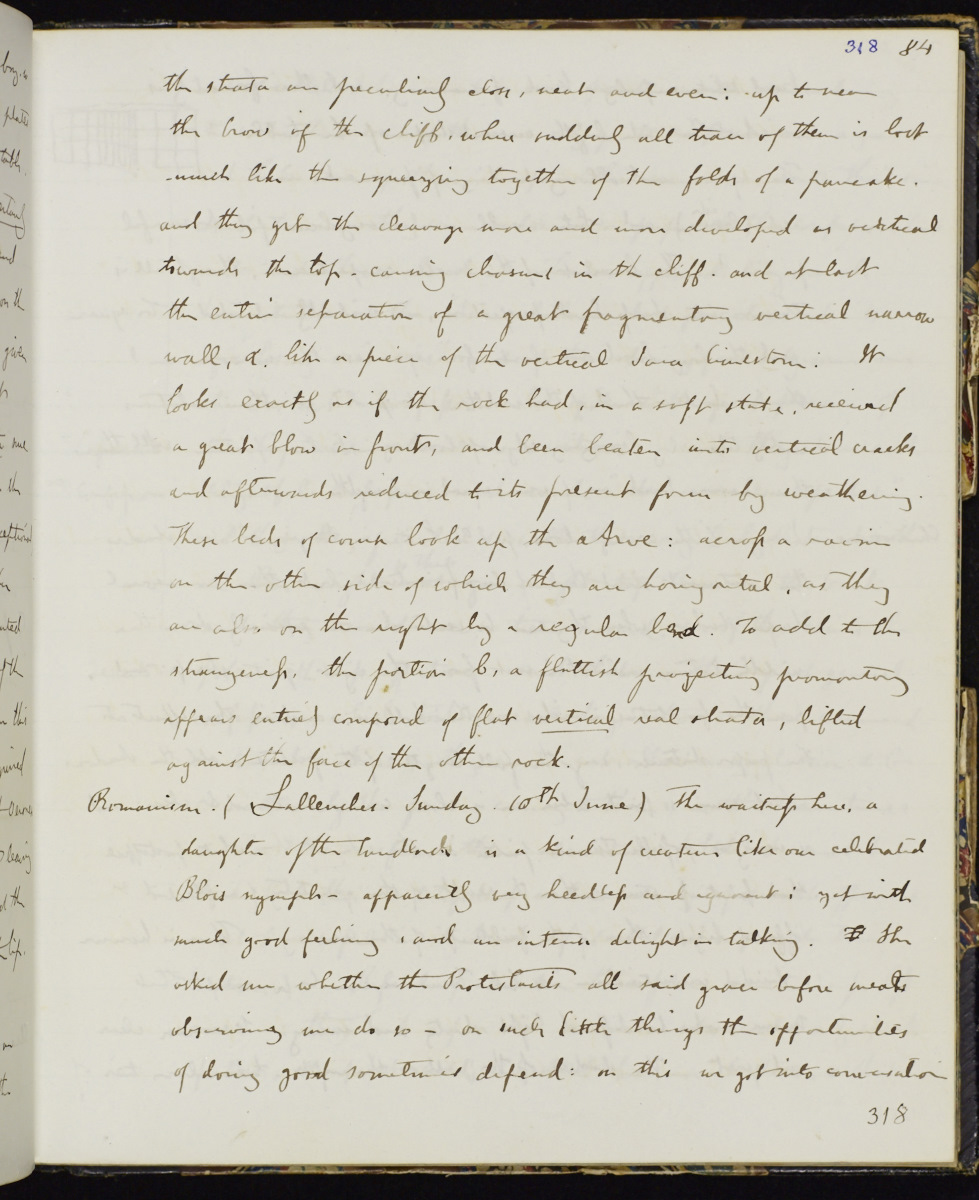 318 84
the strata are peculiarly close, neat and even: up to near
the brow of the cliff, where suddenly all trace of them is lost
much like the squeezing together of the folds of a pancake.
and they get the cleavage more and more developed as vertical
towards the top - causing chasms in the cliff. and at last
the entire separation of a great fragmentary vertical narrow
wall, α. like a piece of the vertical Jura limestone: It
looks exactly as if the rock had, in a soft state, received
a great blow in front, and been beaten into vertical cracks
and afterwards reduced to its present form by weathering.
These beds of course look up the Arve: across a ravine
on the other side of which they are horizontal, as they
are also on the right by a regular bend. To add to the
strangeness, the portion b, a flattish projecting promontory
appears entirely composed of flat vertical real strata, lifted
against the face of the other rock.
Romanism. (Sallenches. Sunday. 10th June) The waitress here, a
daughter of the landlord is a kind of creature like our celebrated
Blois nymph - apparently very heedless and ignorant: yet with
much good feeling, and an intense delight in talking. She
asked me whether the Protestants all said grace before meals
observing me do so - on such little things the opportunities
of doing good sometimes depend: on this we got into conversation
318